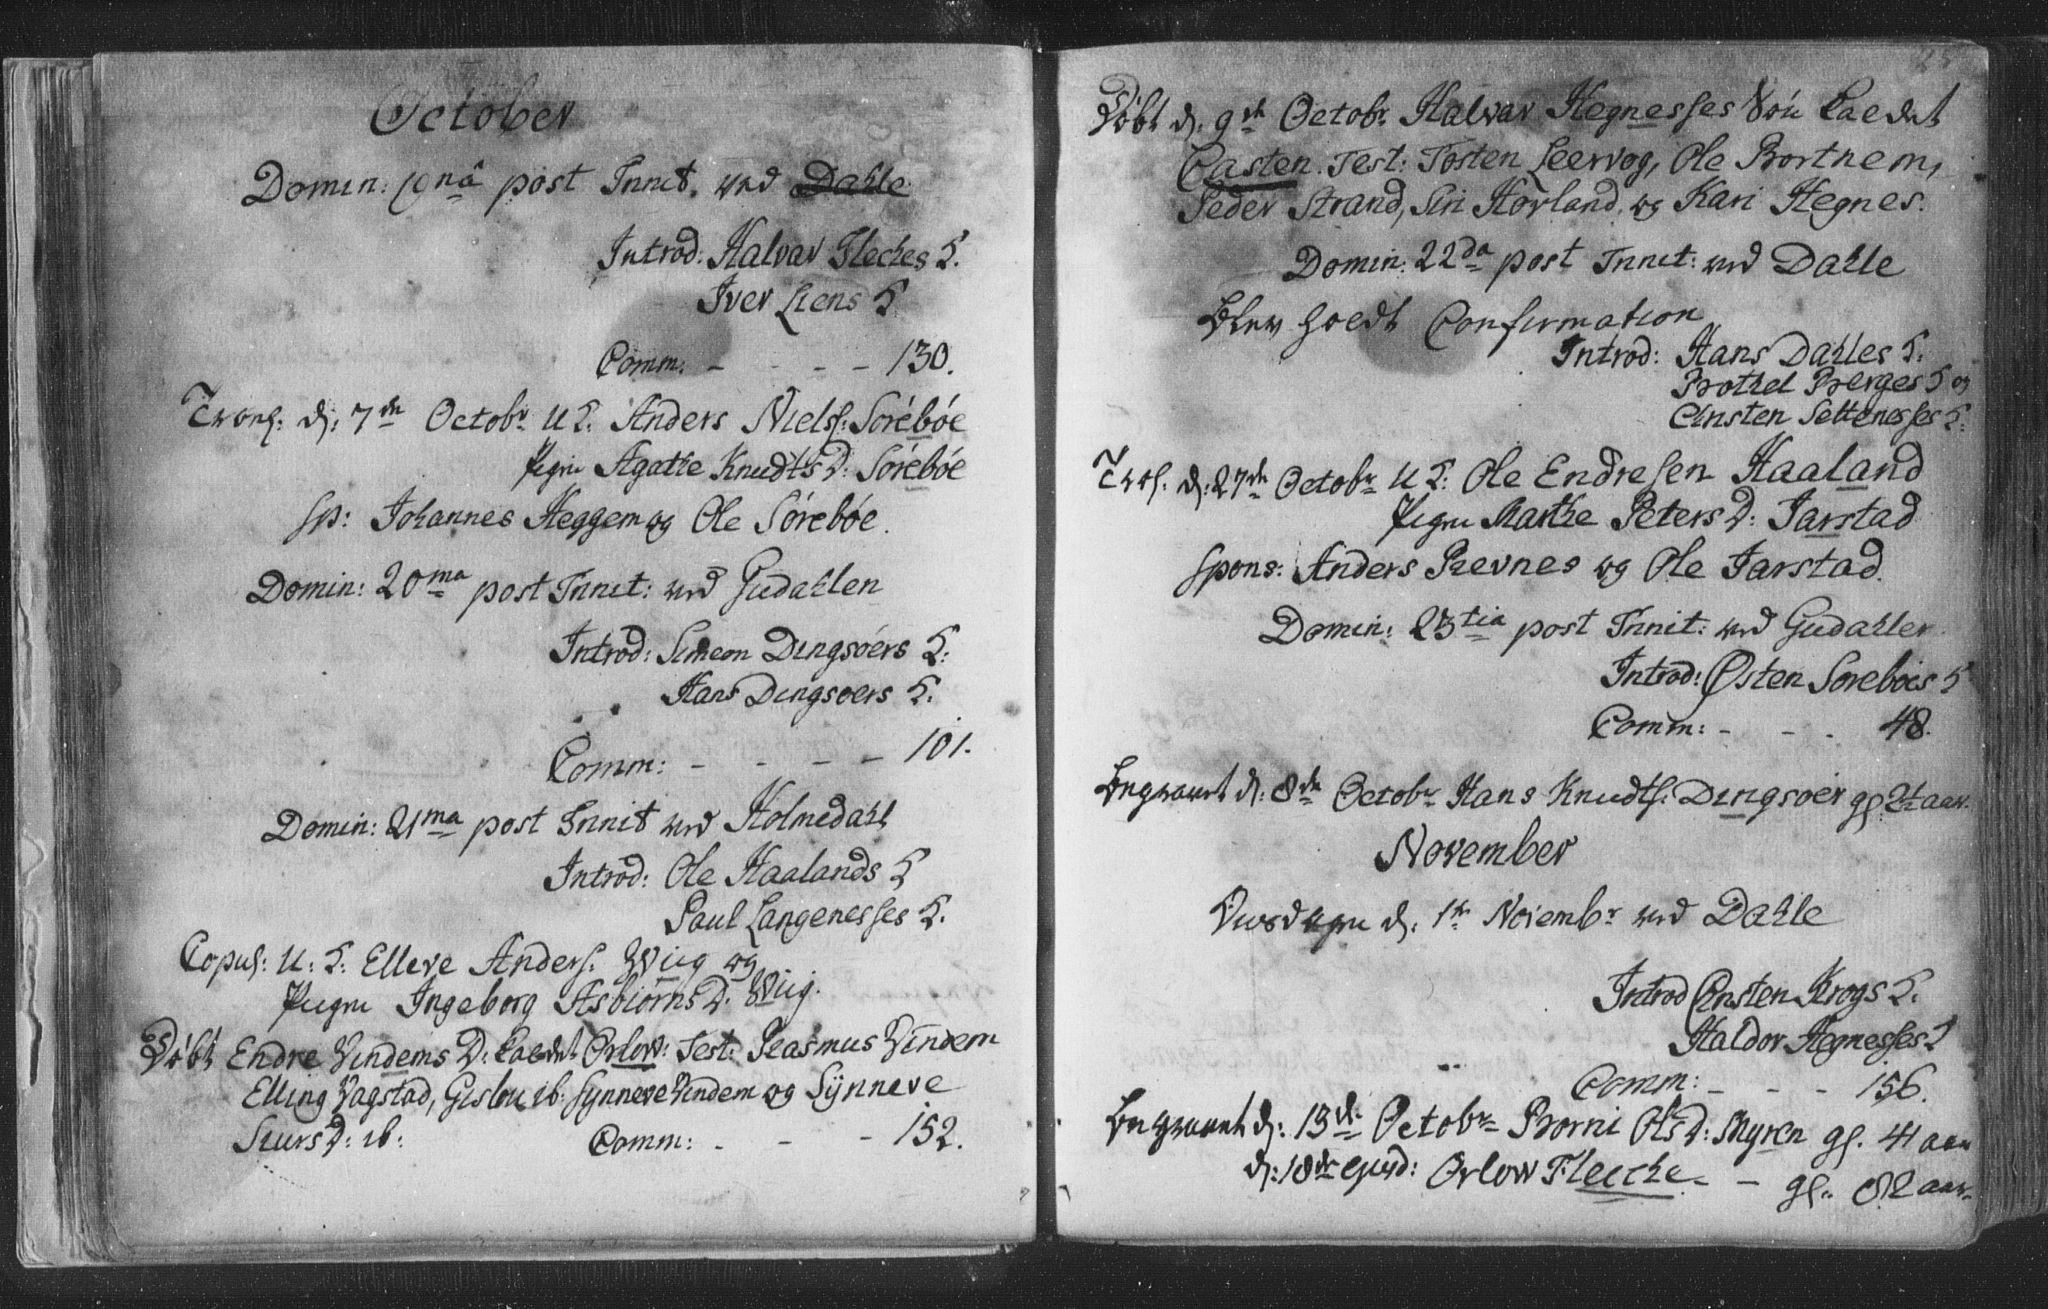 October
Domin: 19nâ post Trinit. ved Dahle
Introd: Halvar Fleckes K.
Iver Liens K
Comm: - - - - 130.
Trol: d: 7de Octobr U K: Anders Niels: Sörèböe
Pigen Agathe KnudtsD: Söreböe
Sp: Johannes Heggem og Ole Söreböe.
Domin: 20ma post Trinit: ved Gudahlen
Introd: Simeon Dingsöers K:
Hans Dingsoers K.
Comm: - - - - 101.
Domin: 21ma post Trinit ved Holmedahl
Introd: Ole Haalands K
Paul Langenesses K.
Copul: U: K: Elleve Anders: Wiig og
Pigen Ingeborg AsbiörnsD: Wiig.
Döbt Endre Vindems D: kaldet Orlow: Test: Rasmus Vindem
Elling Vagstad, Gislou ib: Synneve Vindem og Synneve
SiursD: ib: Comm: - - - 152.
Döbt d: 9de Octobr Halvar Hegnesses Sön kaldet
Casten. Test: Tosten Leervog, Ole Bortnem,
Peder Strand, Siri Horland, og Kari Hegnes.
Domin: 22da post Trinit: ved Dahle
Blev holdt Confirmation
Introd: Hans Dahles K:
Bothel Berges K og
Cinsten Settenesses K:
Trol. d: 27de Octobr U K: Ole Endresen Haaland
Pigen Marthe PetersD: Jarstad
Spons: Anders Revnes og Ole Jarstad.
Domin: 23tia post Trinit: ved Gudahlen
Introd: Østen Soreboes K
Comm: - - - 48.
Begravet d: 8de Octobr Hans Knudts: Dingsoer gl. 2½ aar.
November
Onsdagen d: 1te Novembr ved Dahle
Introd Cinsten Krogs K.
Haldor Hegnesses K
Comm: - - - 156.
Begravet d: 13de Octobr Borni OlsD: Myren gl. 41 aar
d: 18de ejusd: Orlow Flecke - - gl: 82 aar.